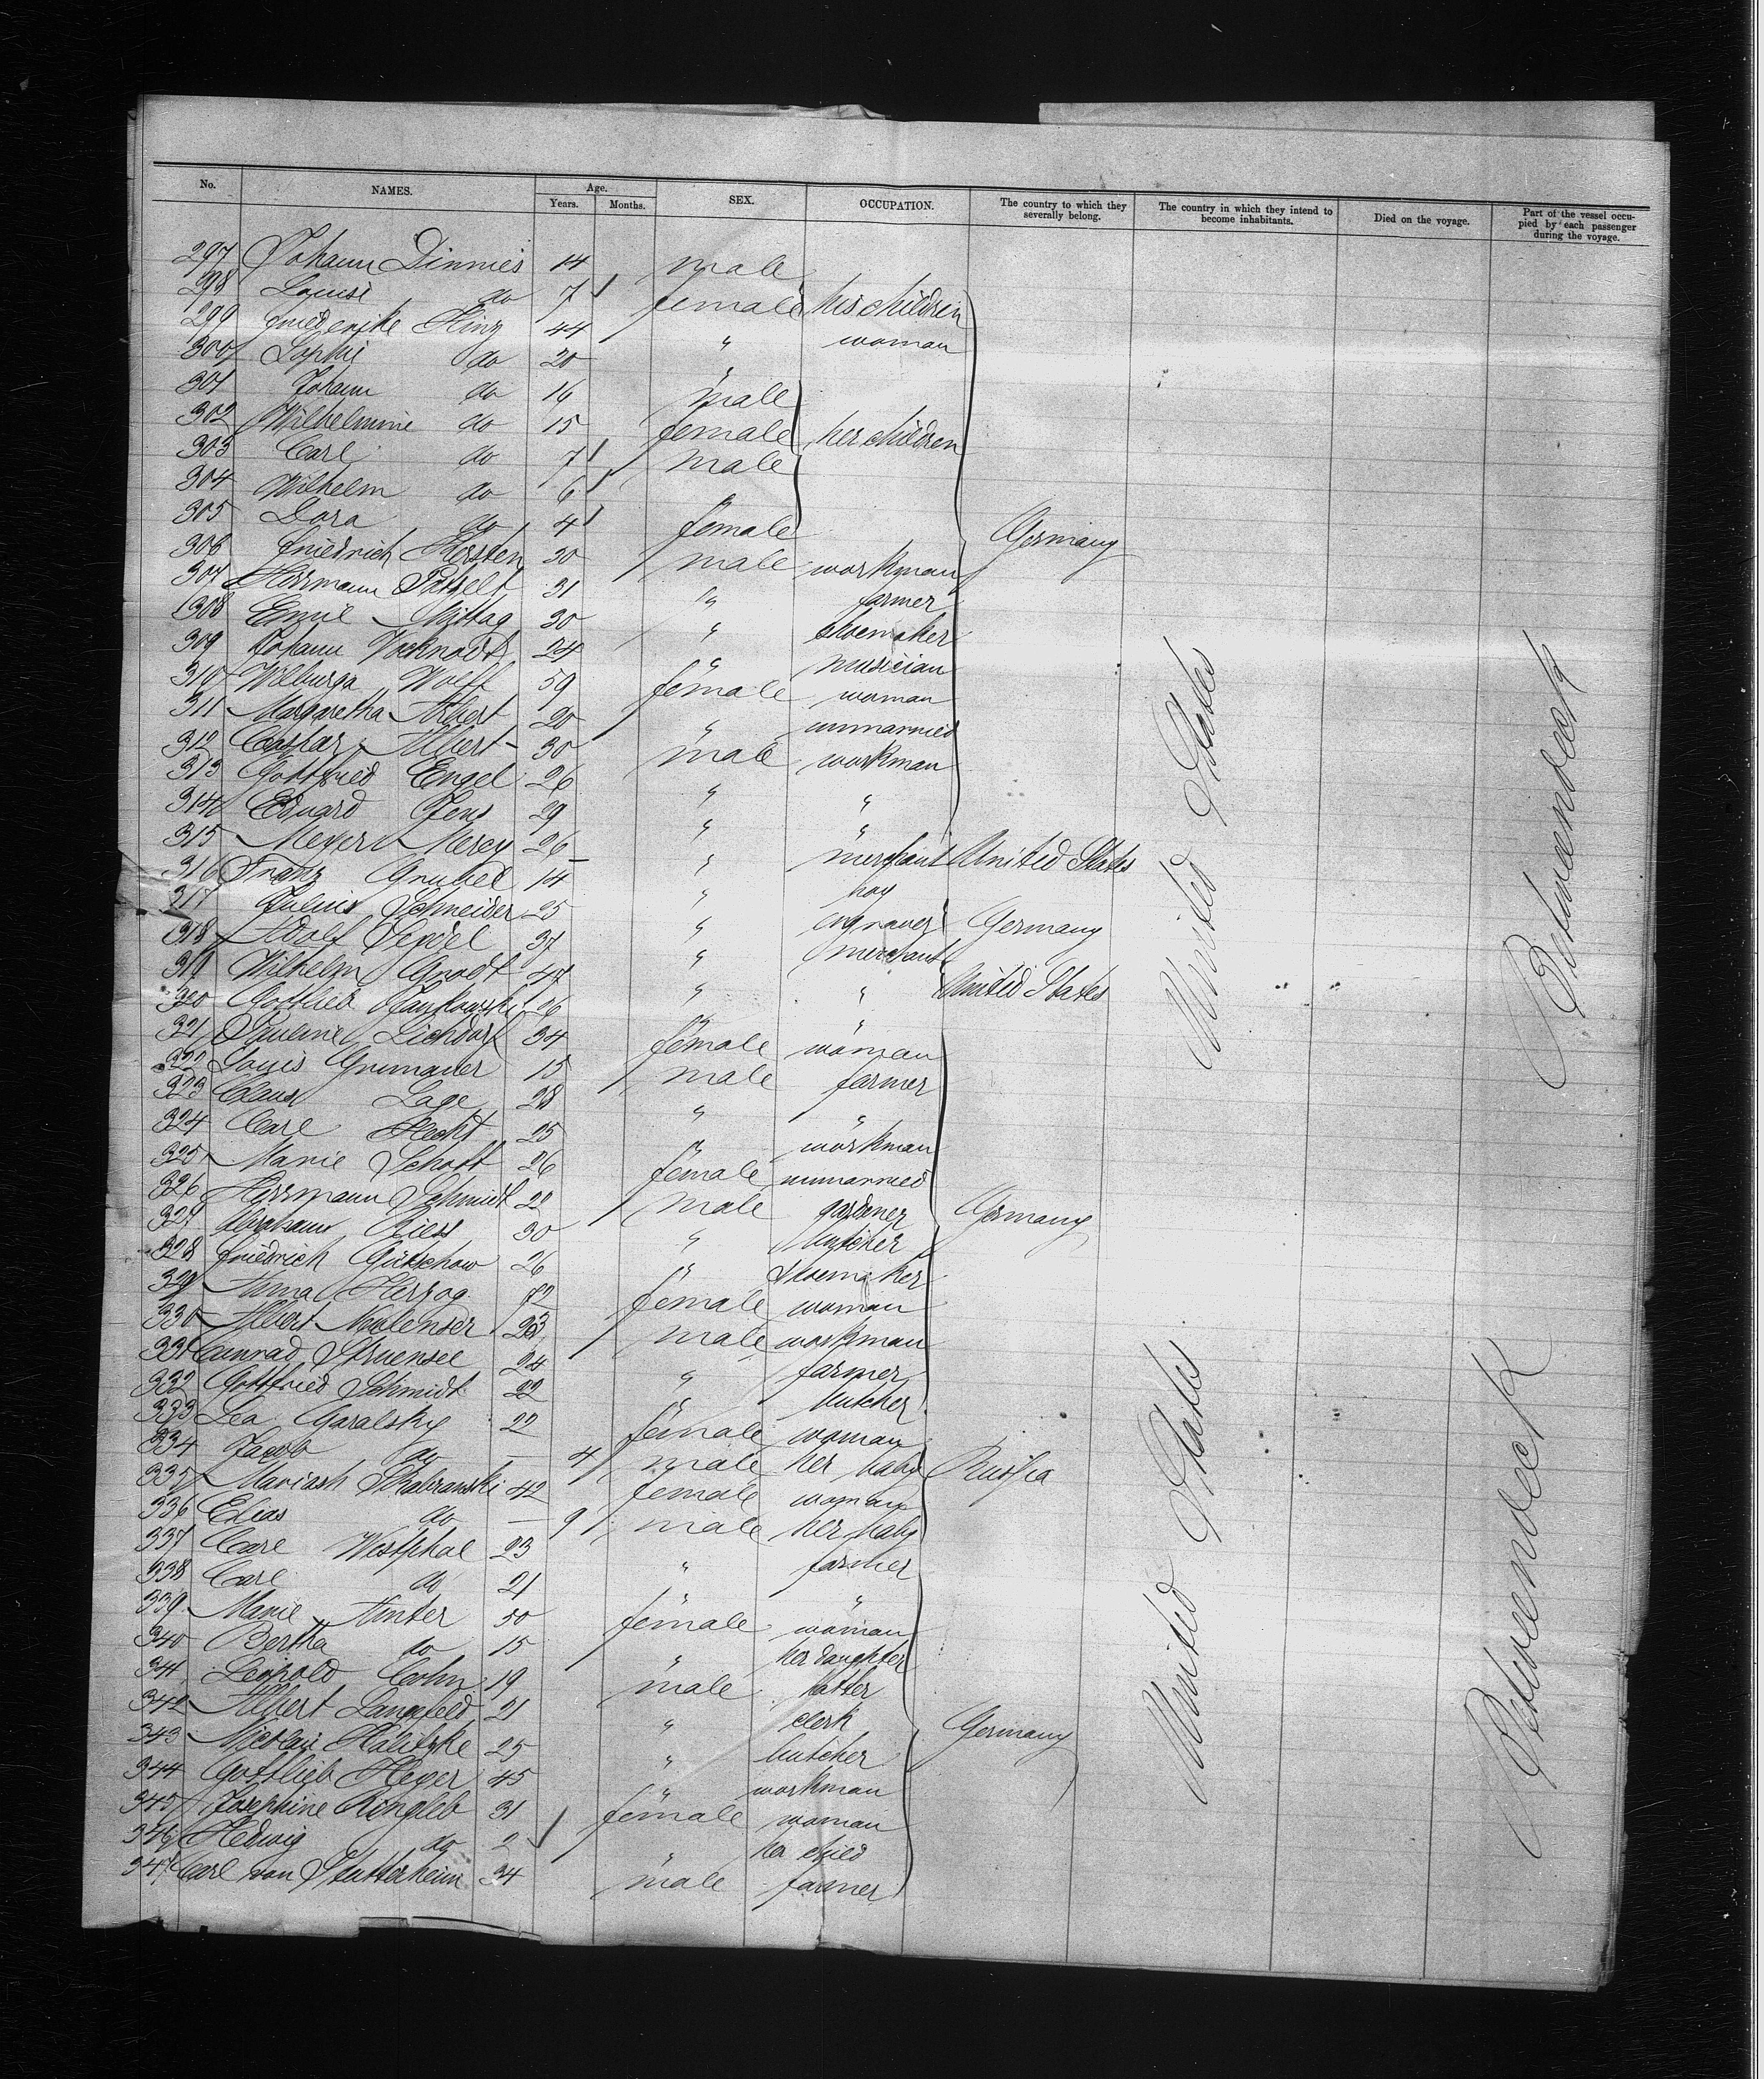 No. NAMES. Age. Years. Months. SEX. OCCUPATION. The country to which they severally belong. The country in which they intend to become inhabitants. Died on the voyage. Part of the vessel occupied by each passenger during the voyage.
297 Johann Dinnies 14 male
298 Louise do 7 female his children
299 Friederike Hinz 44 " woman
300 Sophie do 20 "
301 Johann do 16 male
302 Wilhelmine do 15 female her children
303 Carl do 7 male
304 Wilhelm do 6 "
305 Dora do 4 female Germany
306 Friedrich Kersten 30 male workman
307 Herrmann 31 " farmer
308 Emil Mittag 30 " shoemaker
309 Johann 24 " musician
310 Wilburga Wolff 59 female woman
311 Margaretha Albert 20 " unmarried
312 Caspar Albert 30 male workman
313 Gottfried Engel 26 " "
314 Eduard Jens 29 " "
315 Meyer Mercy 26 " merchant United States
316 Franz Grubel 14 " boy
317 Julius Schneider 25 " engraver Germany
318 Adolf Seydel 37 " merchant
319 Wilhelm Grodt 47 " " United States
320 Gottlieb Jankowski 26 " "
321 Pauline Lichdorf 34 female woman
322 Louis Grunauer 15 male farmer
323 Claus Lage 28 " "
324 Carl Hecht 25 " workman
325 Marie Schott 26 female unmarried
326 Herrmann Schmidt 22 male gardener Germany
327 Abraham Riess 30 " butcher
328 Friedrich Gutschow 26 " shoemaker
329 Anna Herzog female woman
330 Albert 23 male workman
331 Conrad Struensee 24 " farmer
332 Gottfried Schmidt 22 " butcher
333 Lea Garalsky 22 female woman
334 Jacob do — 4 male her baby Russia
335 Mariash 42 female woman
336 Elias do — 9 male her baby
337 Carl Westphal 23 " farmer
338 Carl do 21 " "
339 Marie Hinter 50 female woman
340 Bertha do 15 " her daughter
341 Leopold Cohn 19 male hatter
342 Albert Langfeld 21 " clerk Germany
343 Nicolai 25 " butcher
344 Gottlieb Heyer 45 " workman
345 Josephine Ringleb 31 female woman
346 Hedwig do 2 " her child
347 Carl von Stutterheim 34 male farmer
United States
United States
Betweendeck
Betweendeck